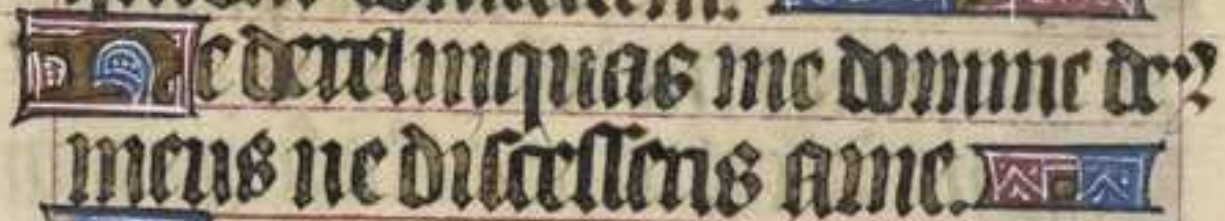 Ne derelinquas me domine deꝰ
meus ne discesseris a me.